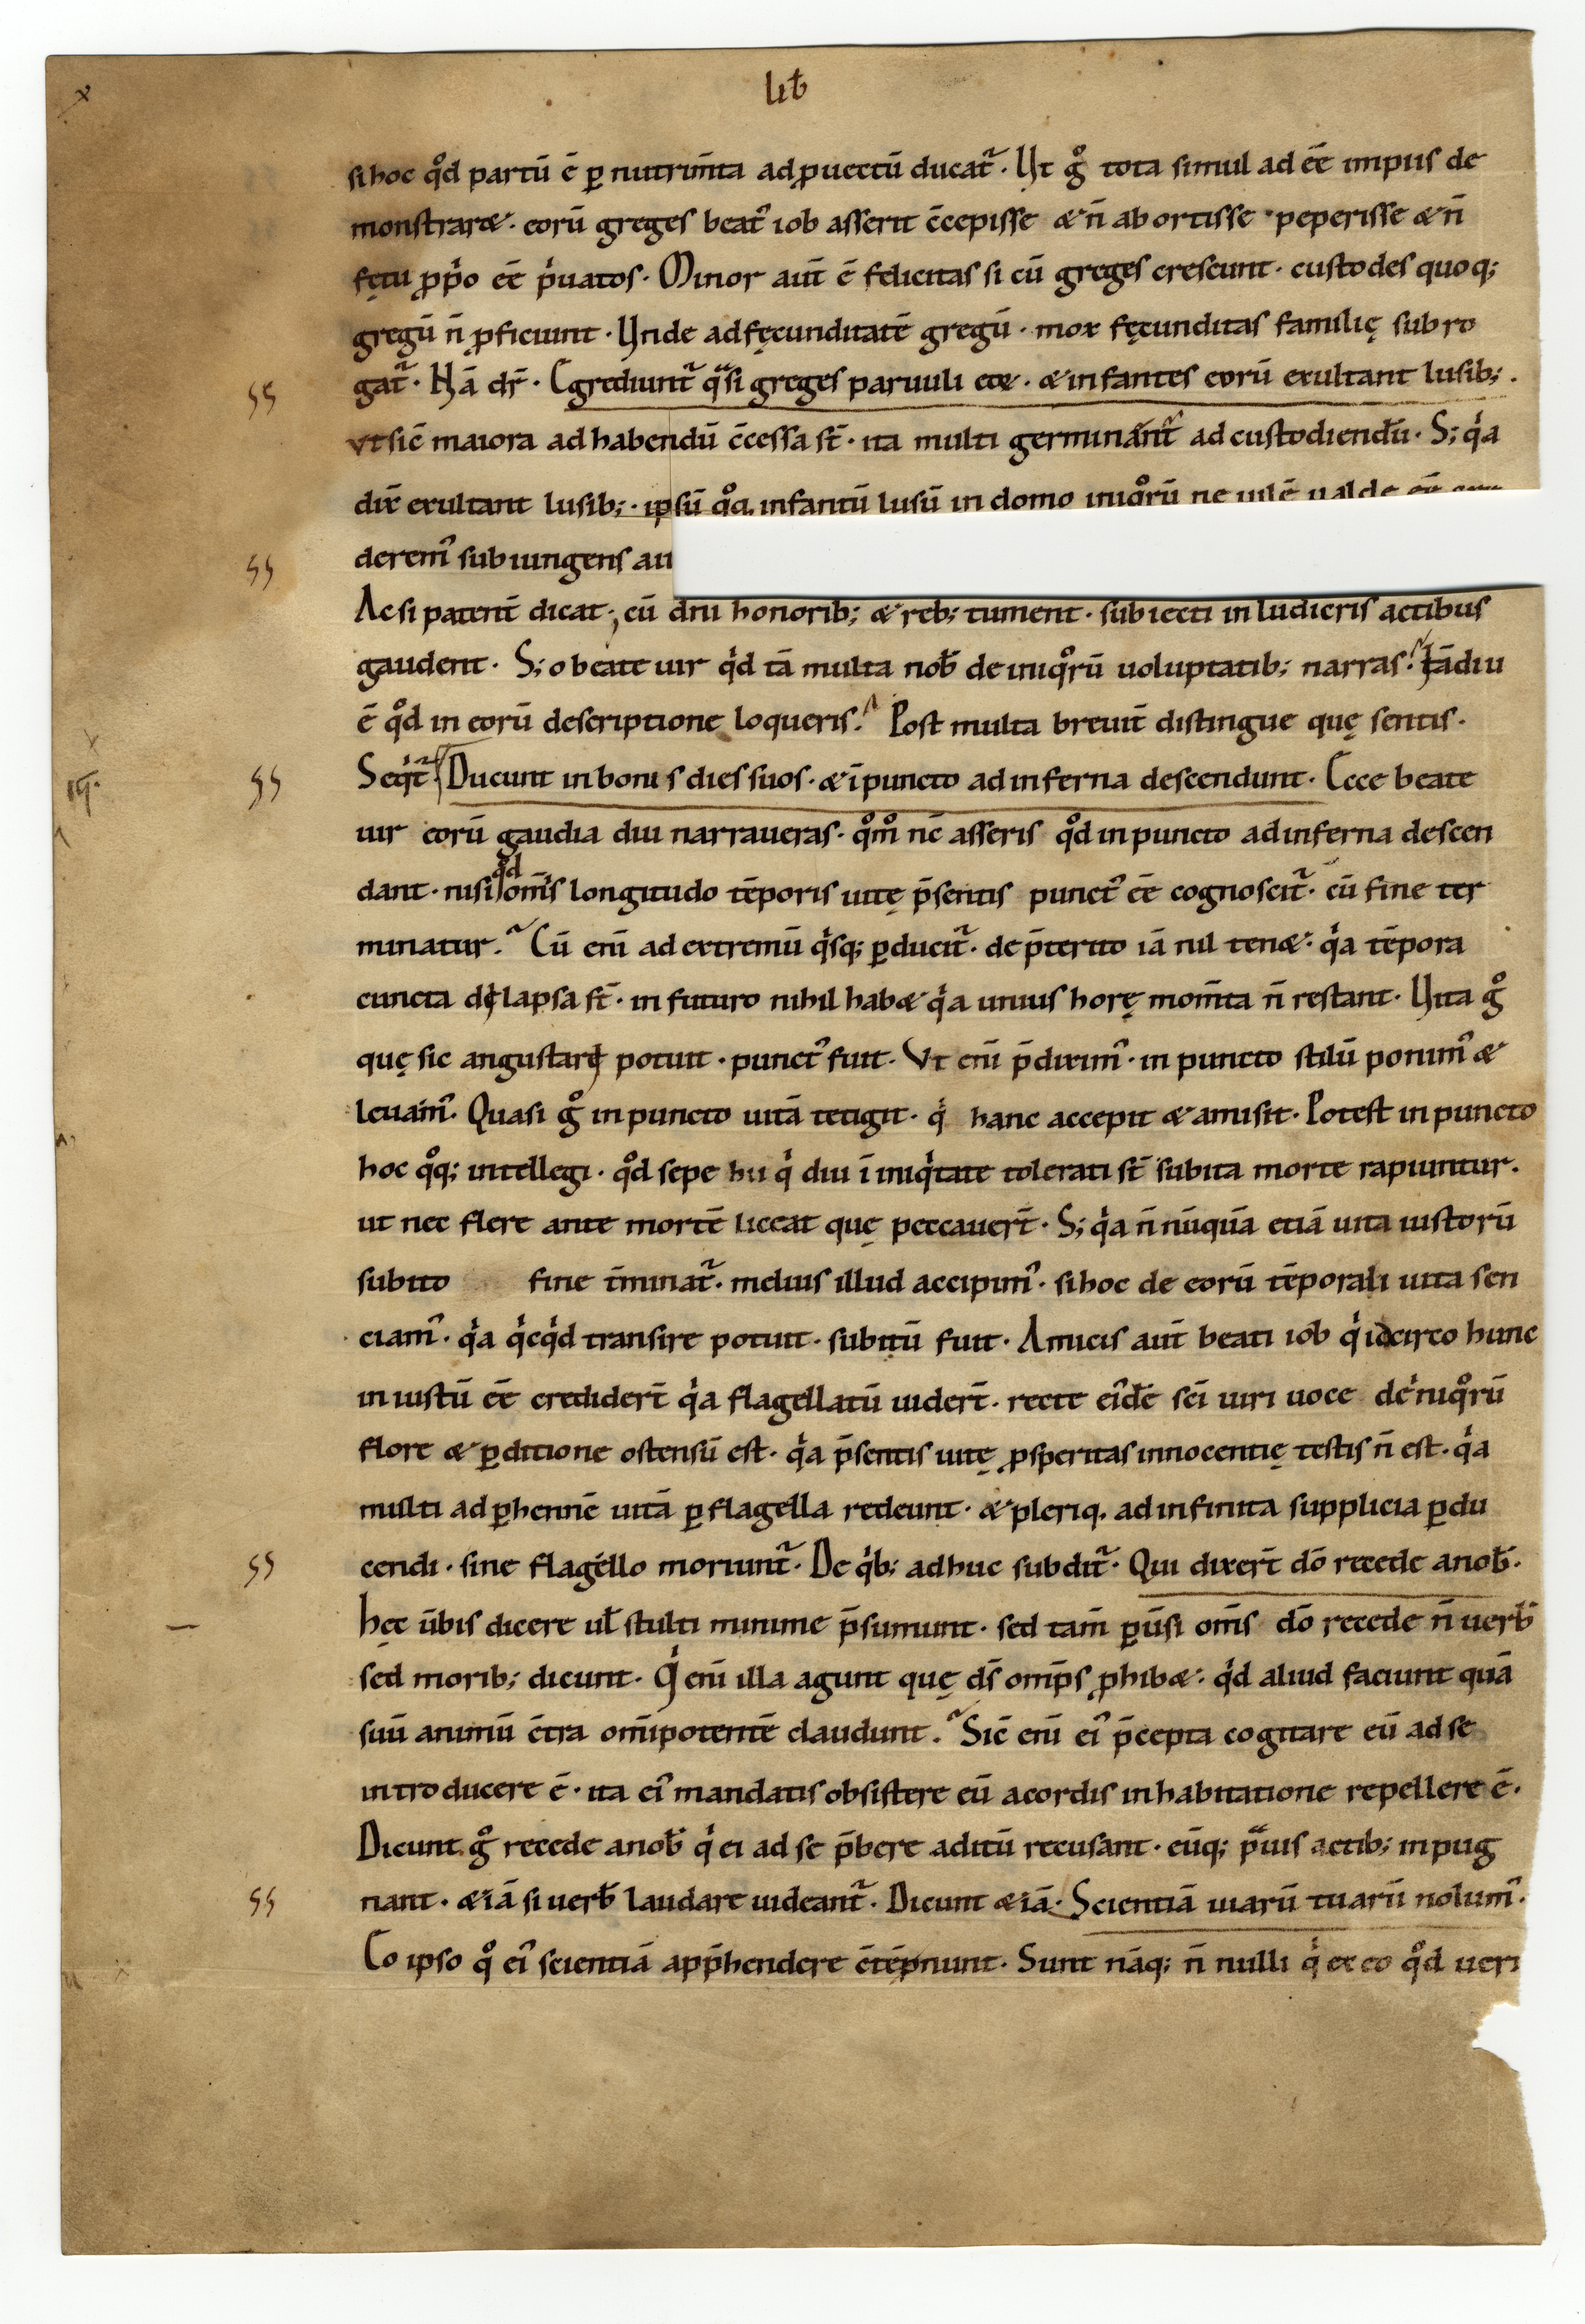 lib̄
si hoc qͦd partū ē ꝑ nutrim̄ta ad ꝓuectū ducat᷑. Ut gͦ tota simul ad eē̄ impiis de
monstraret. eorū greges beat᷒ iob asserit c̄cepisse & n̄ abortisse. peperisse & n̄
fętu ꝓpͥo eē̄ pͥuatos. Minor aut̄ ē felicitas si cū greges crescunt. custodes quoq;
gregū n̄ ꝓficiunt. Unde ad fęcunditatē gregū. mox fęcunditas familię subro
gat᷑. Nā dr̄. Egrediunt᷑ qͣsi greges paruuli eoꝝ. & infantes eorū exultant lusib;.
ss
vt sic̄ maiora ad habendū c̄cessa st̄. ita multi germinant᷑ ad custodiendū. S; qͥa
dix̄ exultant lusib;. ipsū qͦq, infantū lusū in domo iniqͦrū ne uilē ualde
derem᷒ subiungens au
ss
Ac si patent̄ dicat; cū dn̄i honorib; & reb; tument. subiecti in ludicris actibus
gaudent. S; o beate uir qͥd tā multa nob̄ de iniqͦrū uoluptatib; narras? Tādiu
ē qͦd in eorū descriptione loqueris? Post multa breuit̄ distingue quę sentis.
Seqͥt᷑. Ducunt in bonis dies suos. & ī puncto ad inferna descendunt. Ecce beate
ss
uir eorū gaudia diu narraueras. qͦmͦ nc̄ asseris qͦd in puncto ad inferna descen
dant. nisi qͦd om̄is longitudo tēporis uitę p̄sentis punct᷒ eē̄ cognoscit᷑. cū fine ter
minatur? Cū eni ad extremū qͥsq; ꝑducit᷑. de p̄terito iā nil tenet. qͥa tēpora
cuncta delapsa st̄. in futuro nihil habet qͥa unius horę mom̄ta n̄ restant. Uita gͦ
quę sic angustari potuit. punct᷒ fuit. Vt eni p̄dixim᷒. in puncto stilū ponim᷒ &
leuam᷒. Quasi gͦ in puncto uitā tetigit. qͥ hanc accepit & amisit. Potest in puncto
hoc qͦq; intellegi. qͦd sepe hii qͥ diu ī iniqͥtate tolerati st̄ subita morte rapiuntur.
ut nec flere ante mortē liceat quę peccauer̄t. S; qͥa n̄ nūquā etiā uita iustorū
subito fine t̄minat᷑. melius illud accipim᷒. si hoc de eorū tēporali uita sen
ciam᷒. qͥa qͥcqͥd transire potuit. subitū fuit. Amicis aut̄ beati iob qͥ idcirco hunc
iniustū eē̄ credider̄t qͥa flagellatū uider̄t. recte ei᷒dē sc̄i uiri uoce de iniqͦrū
flore & ꝑditione ostensū est. qͥa p̄sentis uitę ꝓsperitas innocentię testis n̄ est. qͥa
multi ad ꝑhennē uitā ꝑ flagella redeunt. & pleriq, ad infinita supplicia ꝑdu
cendi. sine flagello moriunt᷑. De qͥb; adhuc subdit᷑. Qui dixer̄t dō recede a nob̄.
ss
hęc ūbis dicere uƚ stulti minime p̄sumunt. sed tam̄ ꝑūsi om̄s dō recede n̄ uerb̄
sed morib; dicunt. Qͥ eni illa agunt quę ds̄ om̄ps ꝓhibet. qͥd aliud faciunt quā
suū animū c̄tra om̄ipotentē claudunt? Sic̄ eni ei᷒ p̄cepta cogitare eū ad se
introducere ē. ita ei᷒ mandatis obsistere eū a cordis inhabitatione repellere ē.
Dicunt gͦ recede a nob̄ qͥ ei ad se p̄bere aditū recusant. eūq; pͣuis actib; inpug
nant. & iā si uerb̄ laudare uideant᷑. Dicunt & iā. Scientiā uiarū tuarū nolum᷒.
ss
Eo ipso qͦ ei᷒ scientiā app̄hendere c̄tēpnunt. Sunt nāq; n̄ nulli qͥ ex eo qͦd ueri